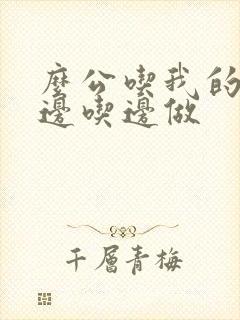 麼公喫我的
邊喫邊做
千層青梅